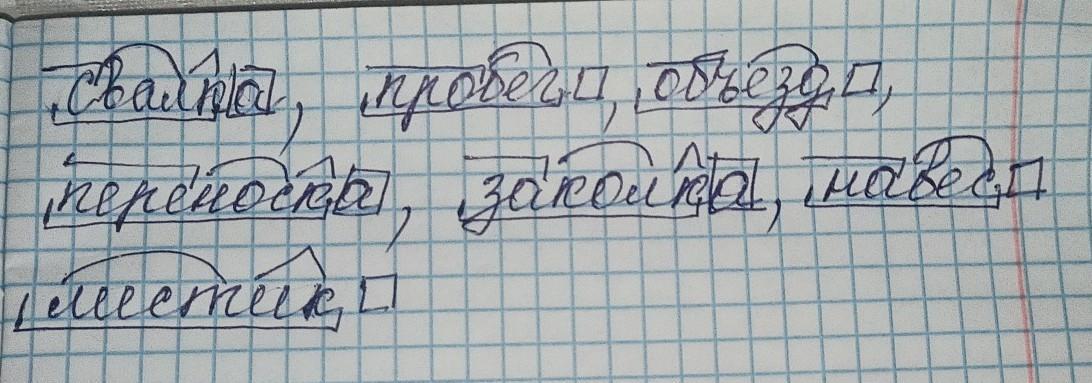 свалка, пробег, объезд,
переноска, заколка, навес
листик